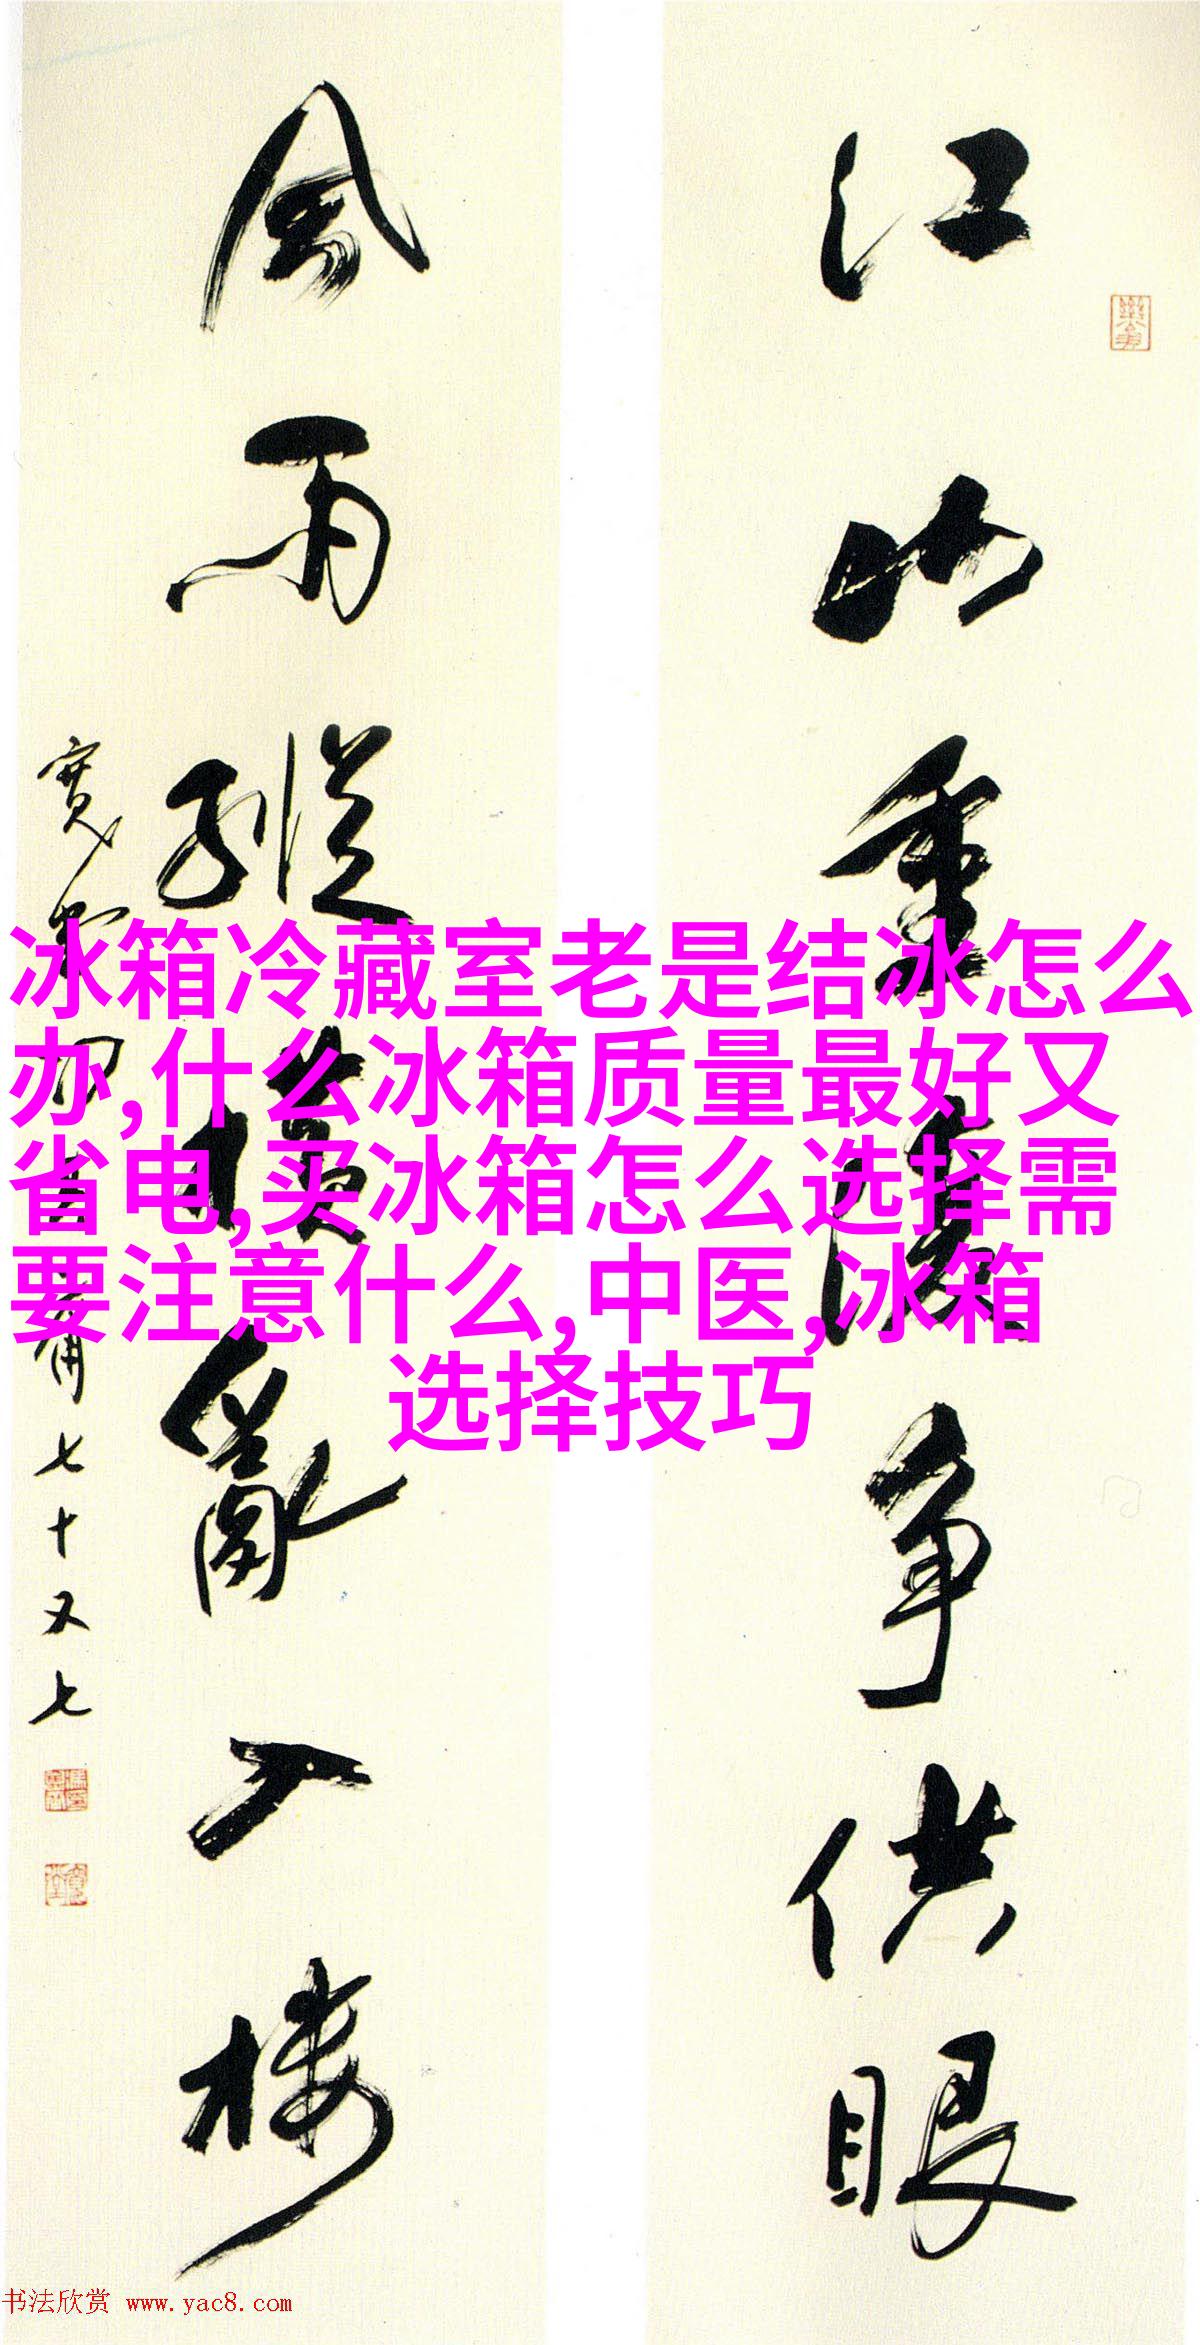 江山重複争供眼
風雨縱橫亂入樓
七十又七
冰箱冷藏室老是结冰怎么
办,什么冰箱质量最好又
省电,买冰箱怎么选择需
要注意什么,中医,冰箱
选择技巧
书法欣赏 www.yac8.com